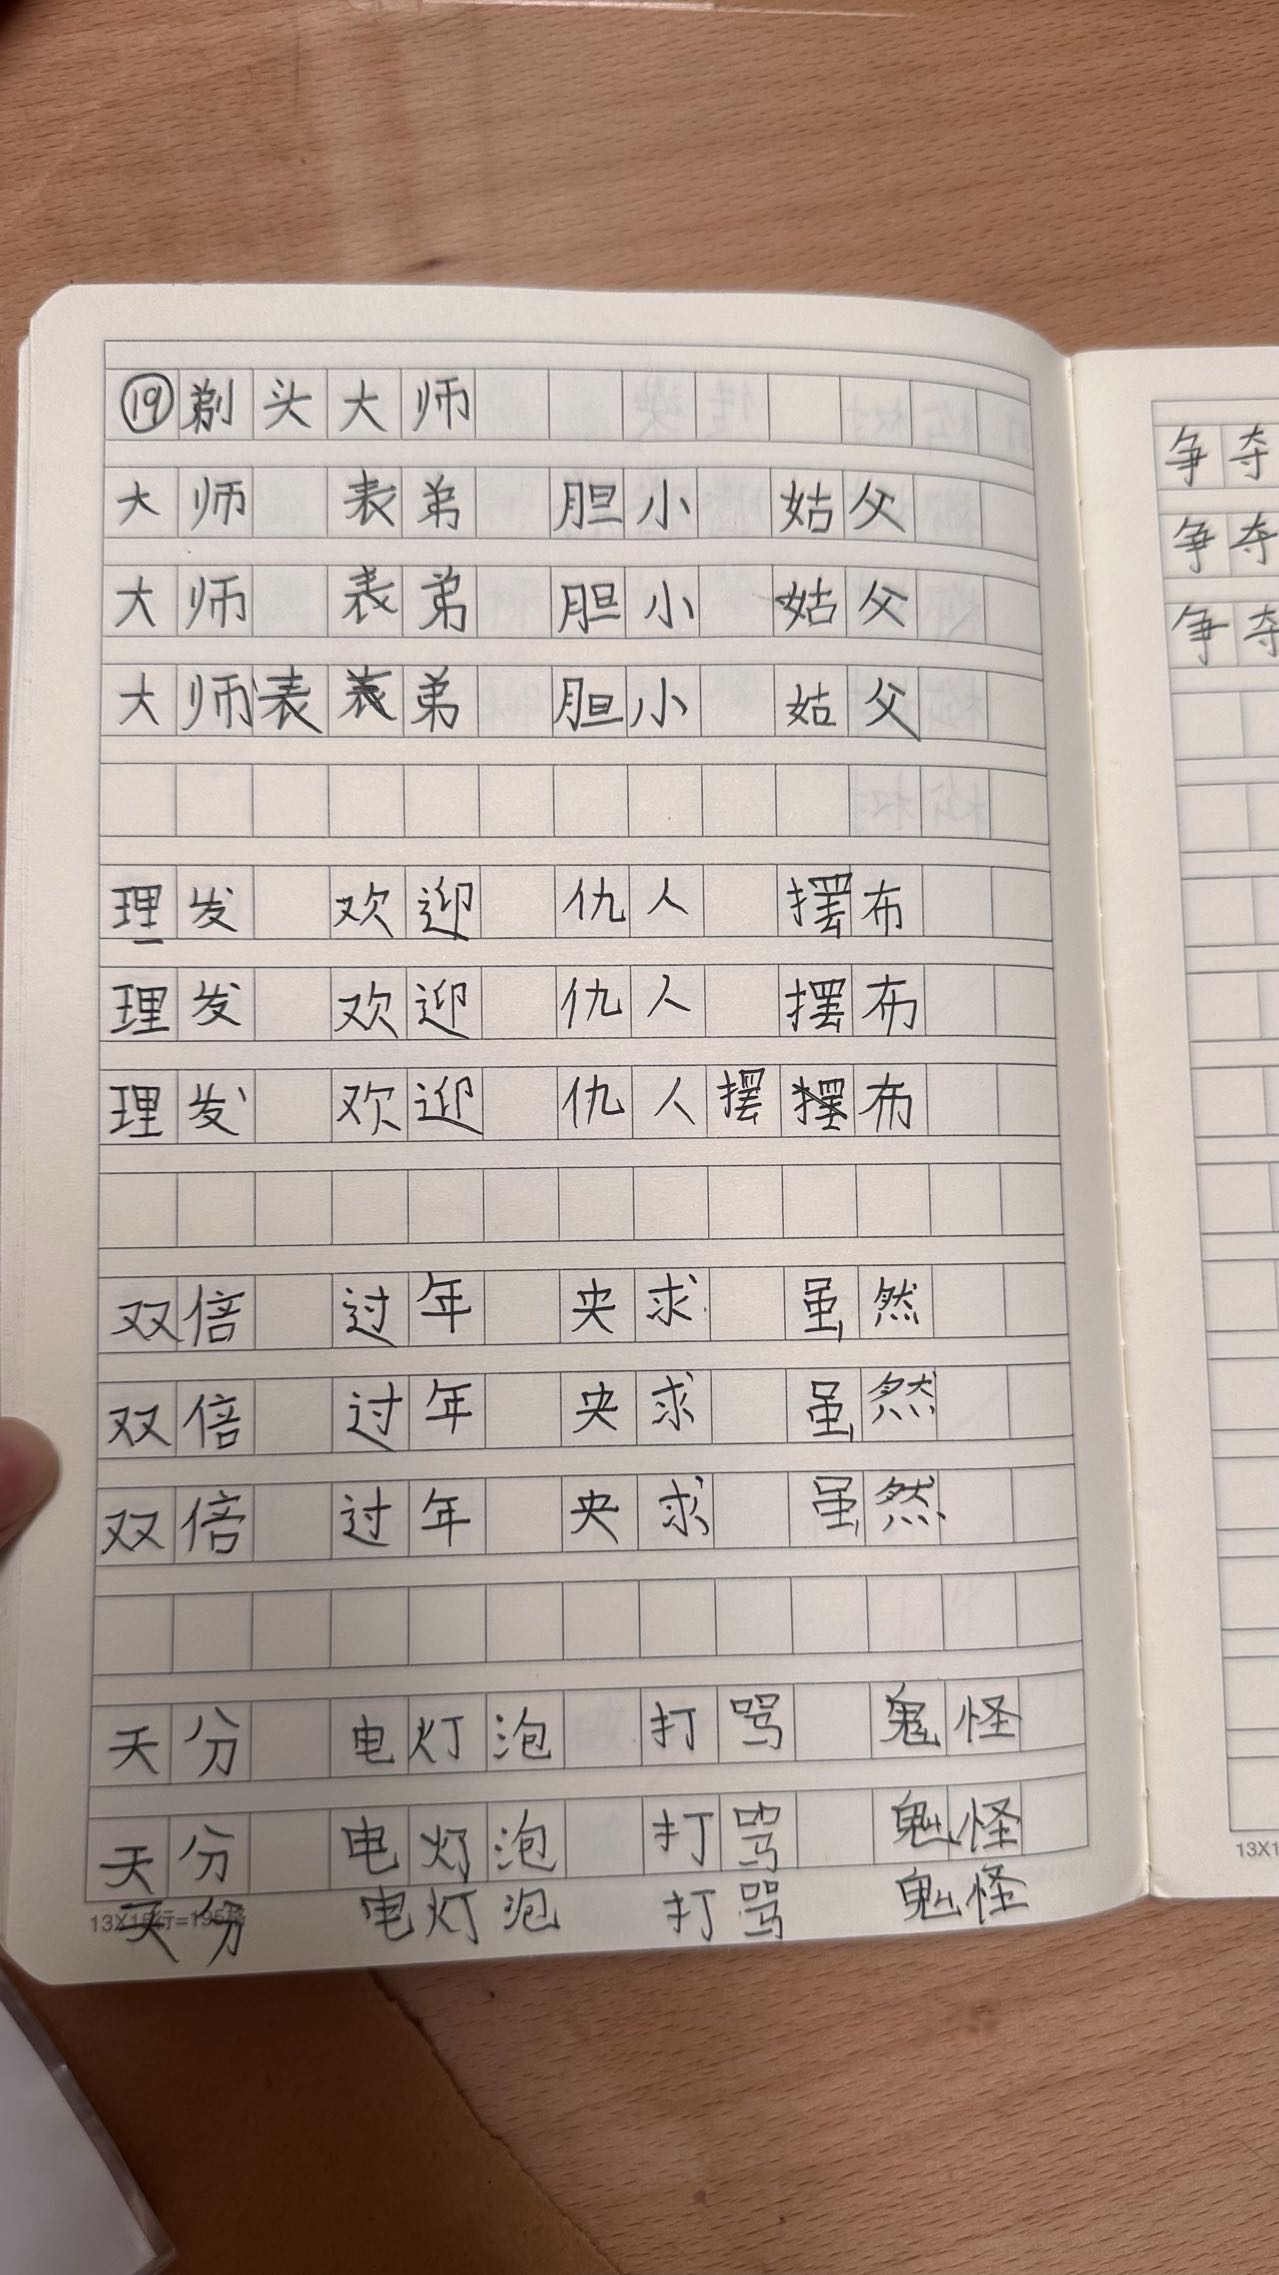 ⑲剃头大师
大师 表弟 胆小 姑父
大师 表弟 胆小 姑父
大师表表弟 胆小 姑父
理发 欢迎 仇人 摆布
理发 欢迎 仇人 摆布
理发 欢迎 仇人摆摆布
双倍 过年 央求 虽然
双倍 过年 央求 虽然
双倍 过年 央求 虽然
天分 电灯泡 打骂 鬼怪
天分 电灯泡 打骂 鬼怪
天分 电灯泡 打骂 鬼怪
13X15行=195格
争夺
争夺
争夺
13X1